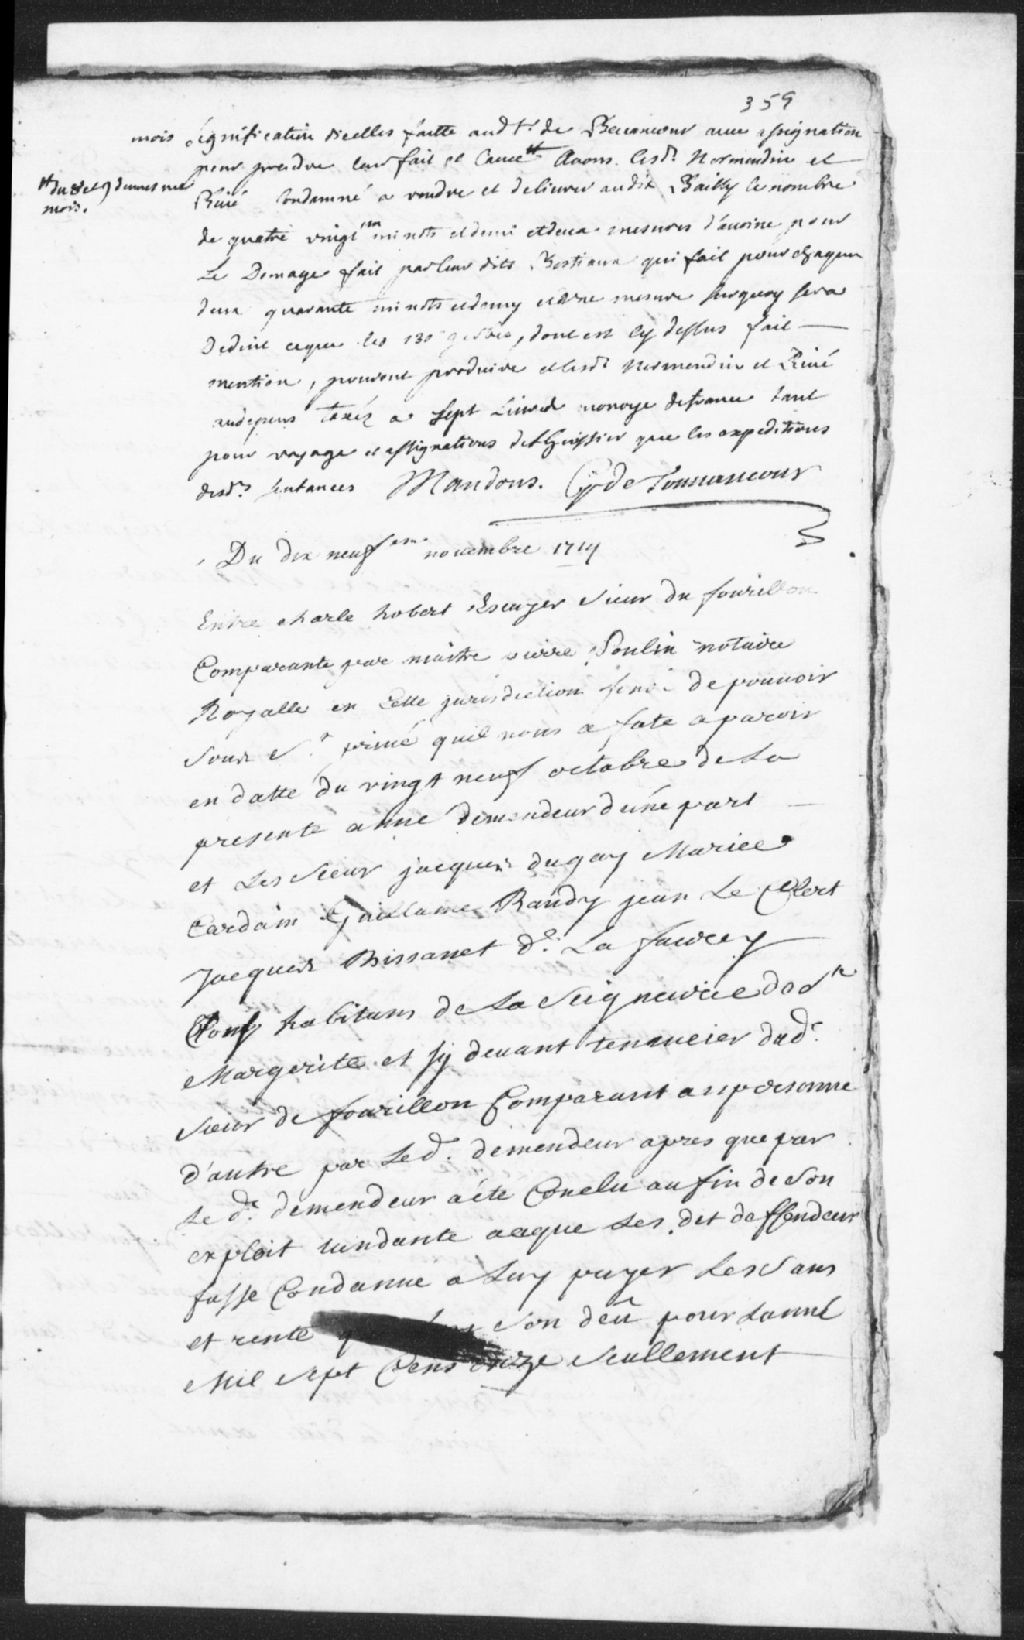 359
mois signification dicelles faitte aud Sr. de Becancour avec assignation
pour prendre leur fait et cause # Avons lesd. Normendin et
# du 8 et 9 du mesme
mois.
Rivé Condamné a rendre et delivrer audit Bailly le nombre
de quatre vingt un minots et demi et deux mesures d'avoine pour
Le Domage fait par leur dits Bestiaux qui fait pour chaqun
deux quarante minots et demy et une mesure surquoy sera
Deduit ceque les 130 gerbes, dont est cy dessus fait
mention, peuvent produire et lesd. Normendin et Rivé
aux depens taxéz a sept Livres monoye de france tant
pour voyage et assignations de l'huissier que les expeditions
desd. sentances Mandons. G de Tonnancour
Du dix neufe. novembre 1714
Entre charle Robert Escuyer Sieur du fourillon
Comparante par maitre pierre Poulin notaire
Royalle en Cette jurisdiction de pouvoir
Sous S. privé quil nous a fate aparoir
en datte du vingt neuf octobre de La
presente anne demendeur dune part
et Les Sieur jacques dugay Mariee
Cardain Guillame Baudy jean Le Clert
Jacques Bissonet d. La faurcy
Tous habitans de La Seigneurie de Sr
Margerite et sy devant tenancier dud.
Sieur de fourillon Comparant an personne
d'autre par Le d. demendeur apres que par
Le d. demendeur a éte Conclu au fin de Son
exploit tandante aaque Les dit deffendeur
fusse Condanne a Luy payer Les Sans
et rente Son deû pour Lanné
Mil Sept Cens onze Seullement